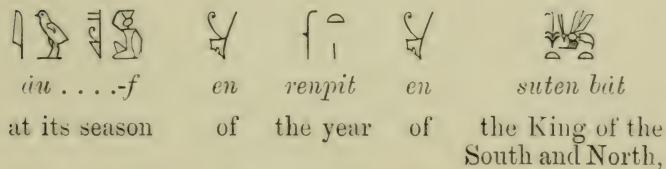 áu . . . .-f en renpit en suten bát
at its season of the year of the King of the
South and North,